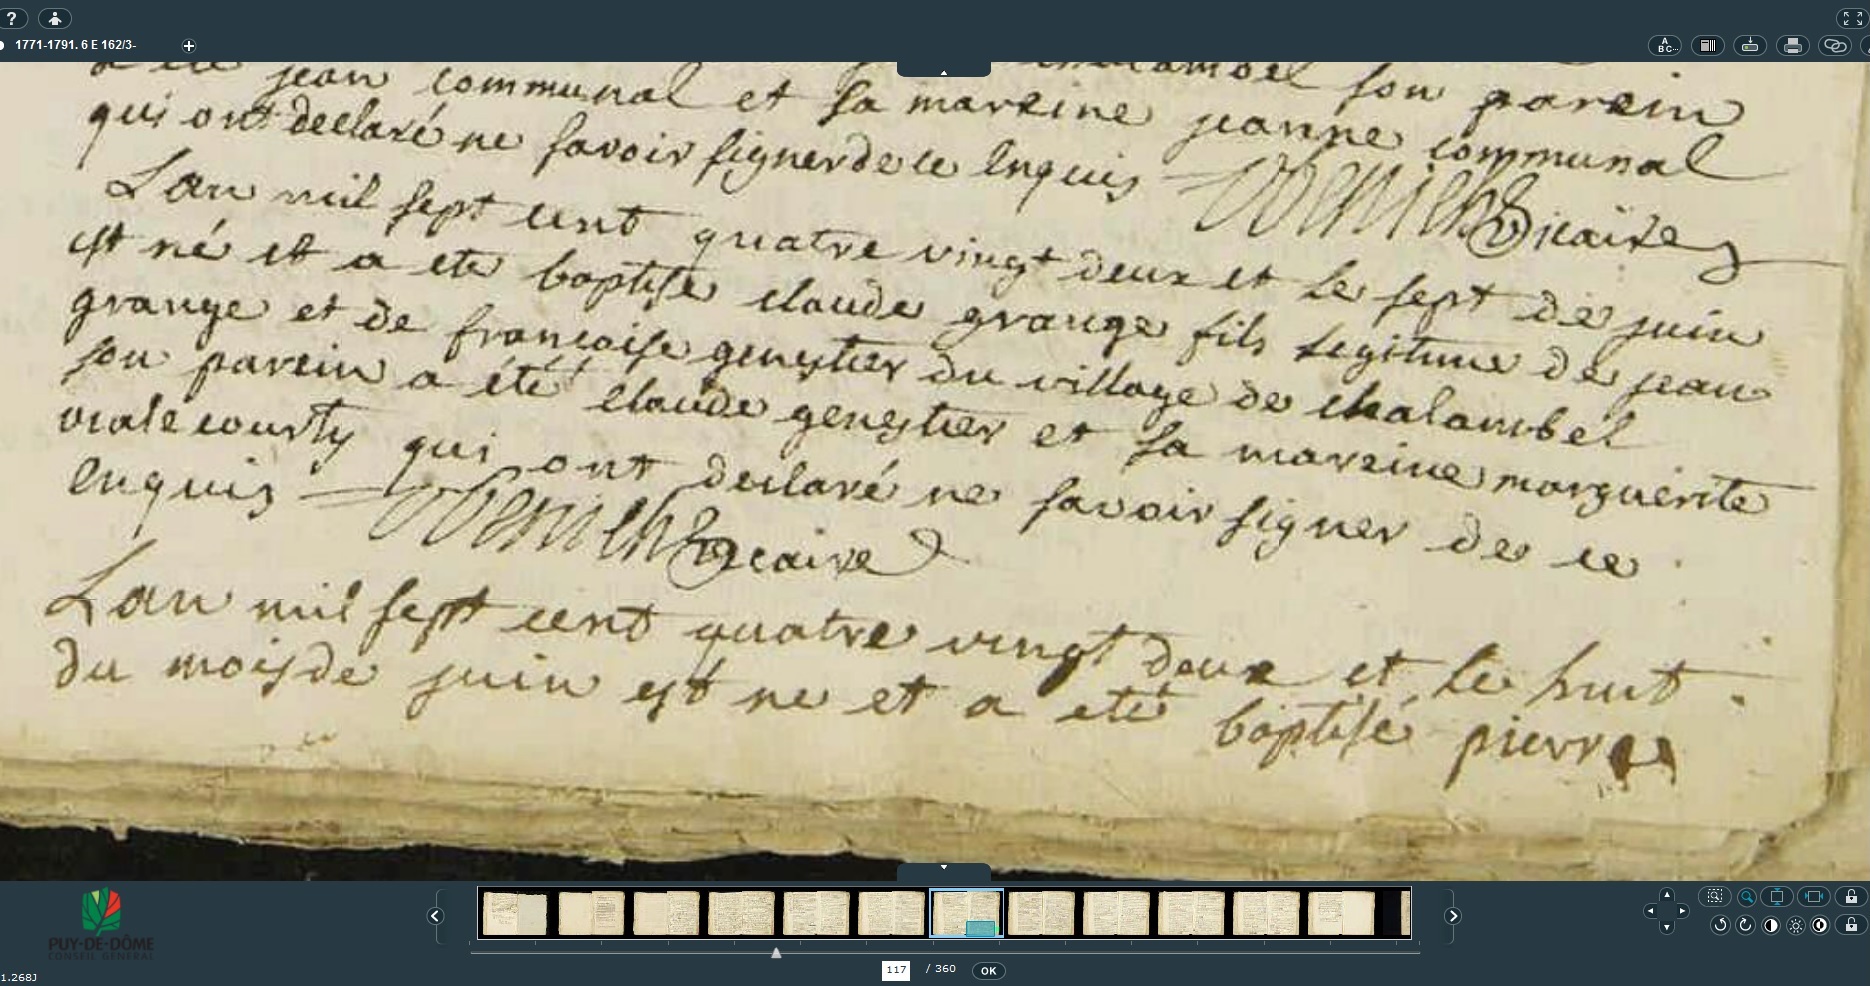 1771-1791. 6 E 162/3-
A
BC...
jean communal et sa mareine jeanne communal
son parein
qui ont declaré ne savoir signer de ce enquis
vicaire
Lan mil sept cent quatre vingt deux et le sept de juin
est né et a ete baptise claude grange fils legitime de jean
grange et de francoise genestier du village de chalambel
son parein a été claude genestier et sa mareine marguerite
viale courty qui ont declaré ne savoir signer de ce
enquis
vicaire
Lan mil sept cent quatre vingt deux et le huit
du mois de juin est ne et a eté baptisé pierre
PUY-DE-DÔME
CONSEIL GENERAL
117 / 360 OK
1.268J